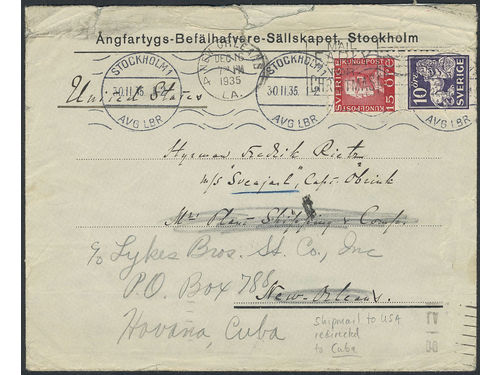 Ångfartygs-Befälhafvare-Sällskapet, Stockholm
STOCKHOLM 1
30.11.35.
AVG LBR
NEW ORLEANS
DEC 16
PM
1935
LA.
STOCKHOLM 1
30.11.35.
AVG LBR
MAIL
SVERIGE
KUNGL. POST
15 ÖRE
10 ÖRE
SVERIGE
AVG LBR
United States
Styrman Fredrik
m/s "Sveajarl", Capt.
Shipping & Comp.
c/o Lykes Bros. St. Co., Inc
P.O. Box 786
New-Orleans.
Havana, Cuba
shipmail to USA
redirected
to Cuba